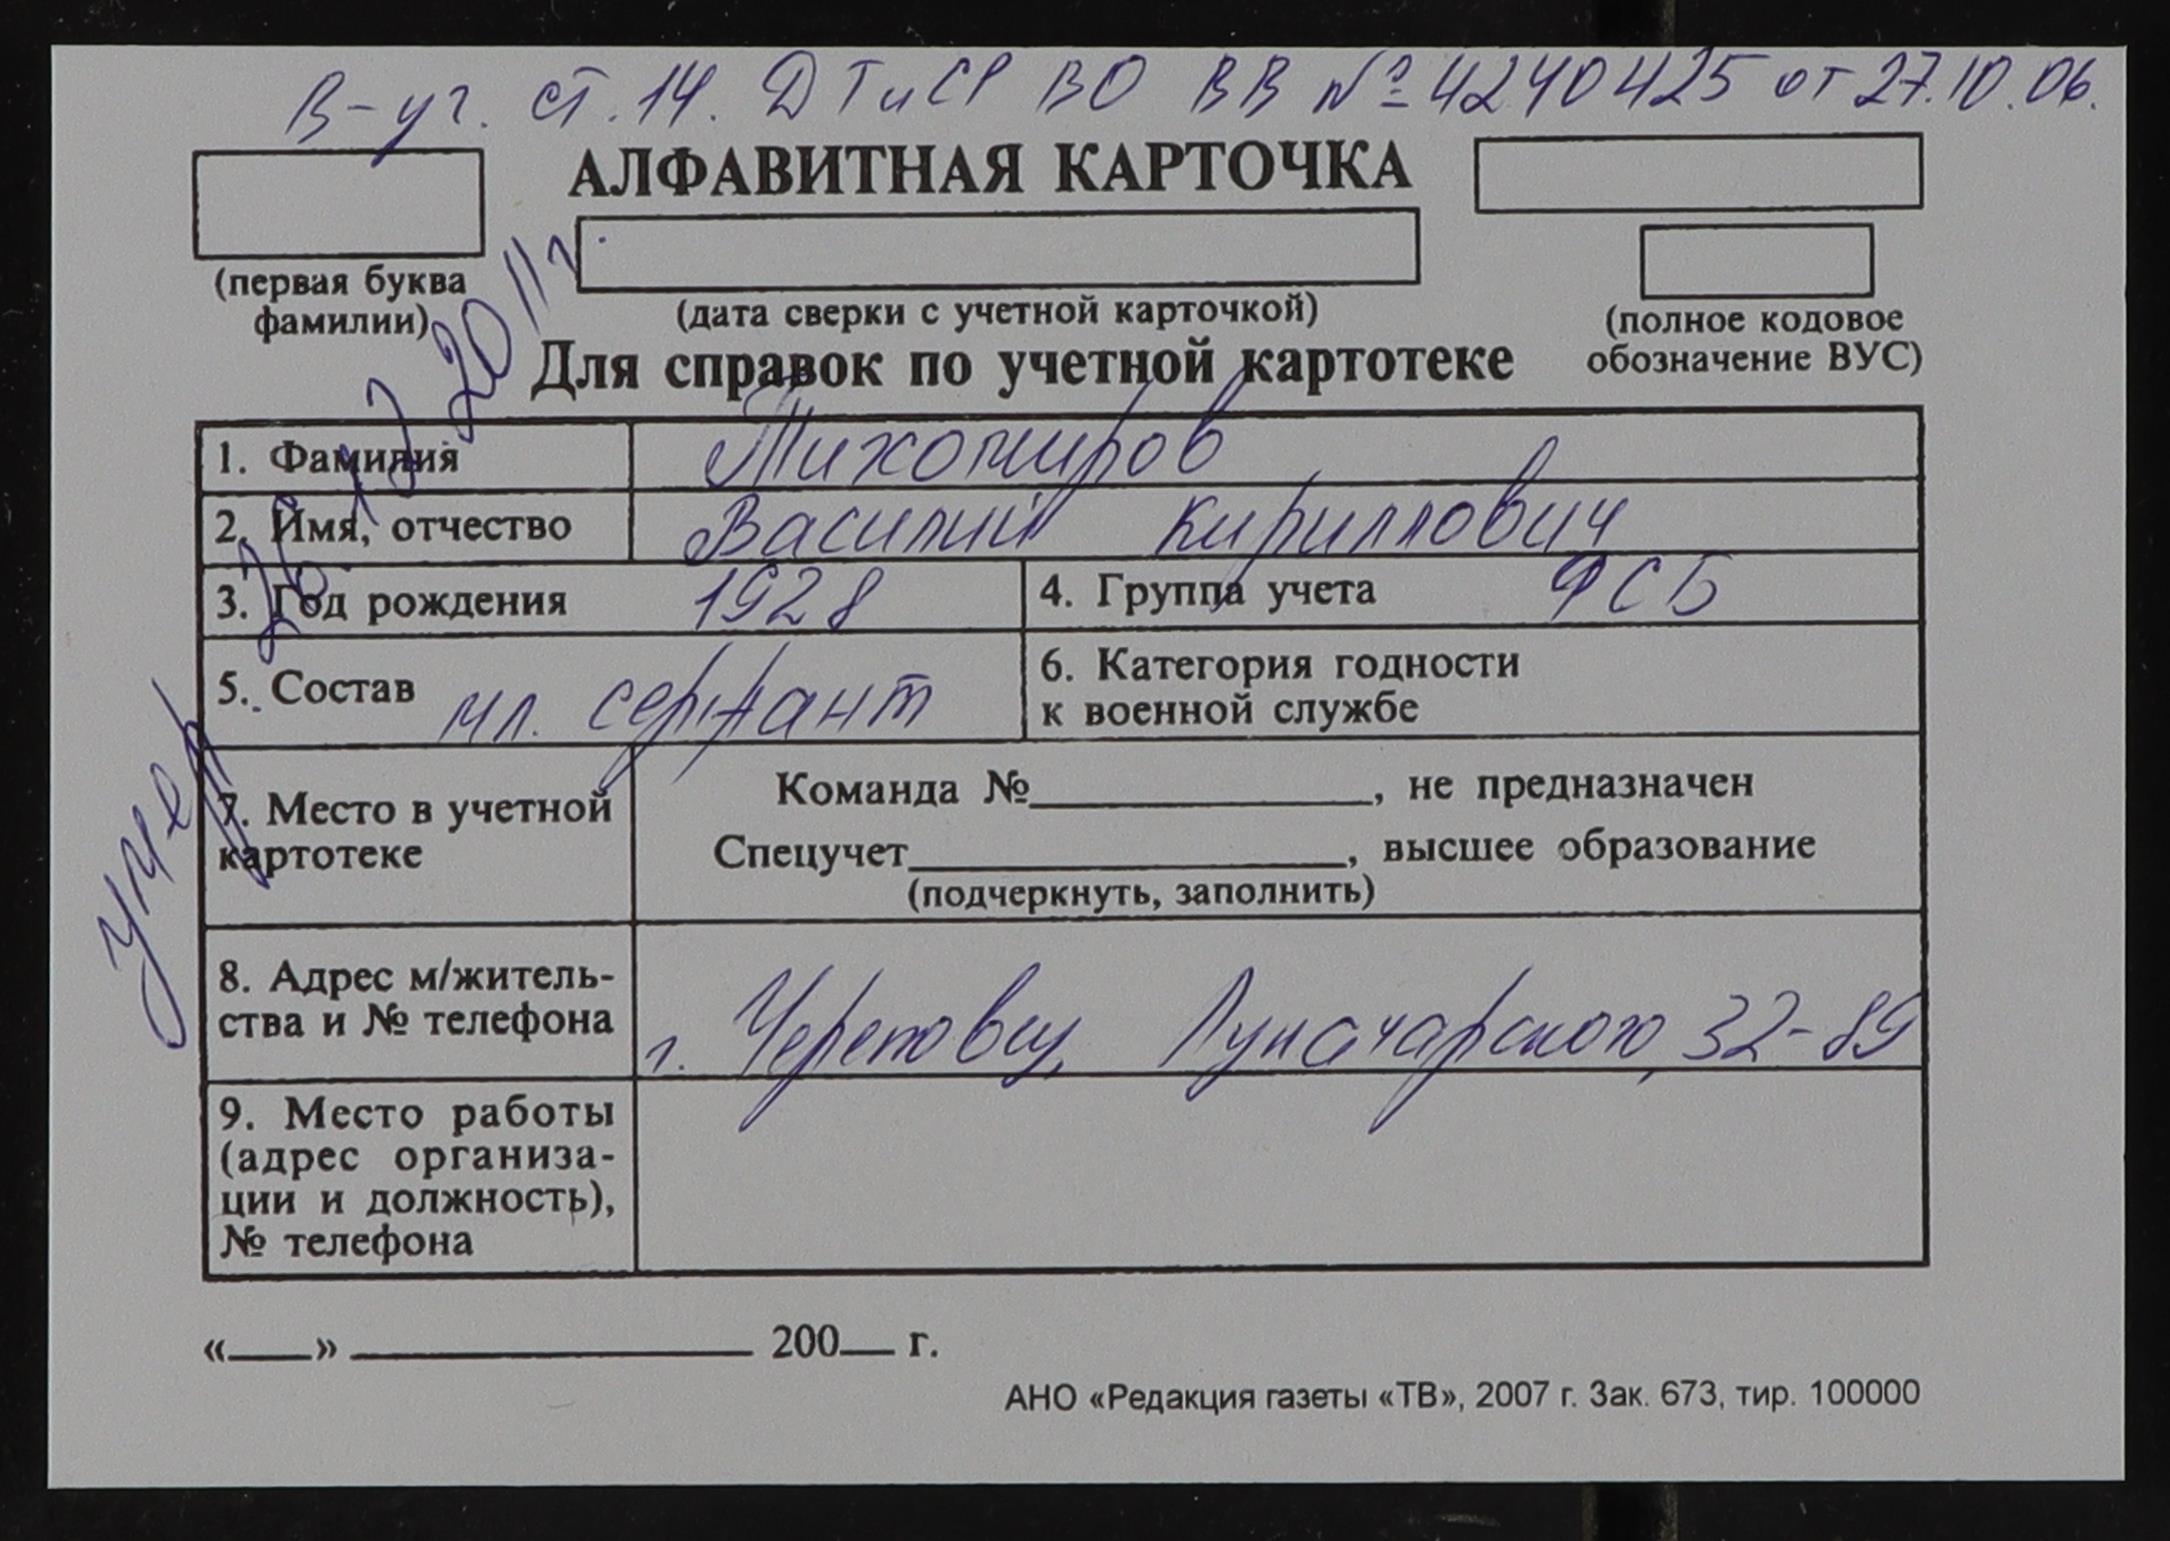 В-уг. ст.14. ДТиСР ВО ВВ № 4240425 от 27.10.06.
АЛФАВИТНАЯ КАРТОЧКА
(первая буква
фамилии)
(дата сверки с учетной карточкой)
(полное кодовое
обозначение ВУС)
Для справок по учетной картотеке
умер 2011г.
1. Фамилия Тихомиров
2. Имя, отчество Василий Кириллович
3. Год рождения 1928 4. Группа учета ФСБ
5. Состав мл. сержант 6. Категория годности
к военной службе
7. Место в учетной
картотеке
Команда №____, не предназначен
Спецучет____, высшее образование
(подчеркнуть, заполнить)
8. Адрес м/житель-
ства и № телефона
г. Череповец, Луначарского, 32-89
9. Место работы
(адрес организа-
ции и должность),
№ телефона
«__» ____ 200__ г.
АНО «Редакция газеты «ТВ», 2007 г. Зак. 673, тир. 100000